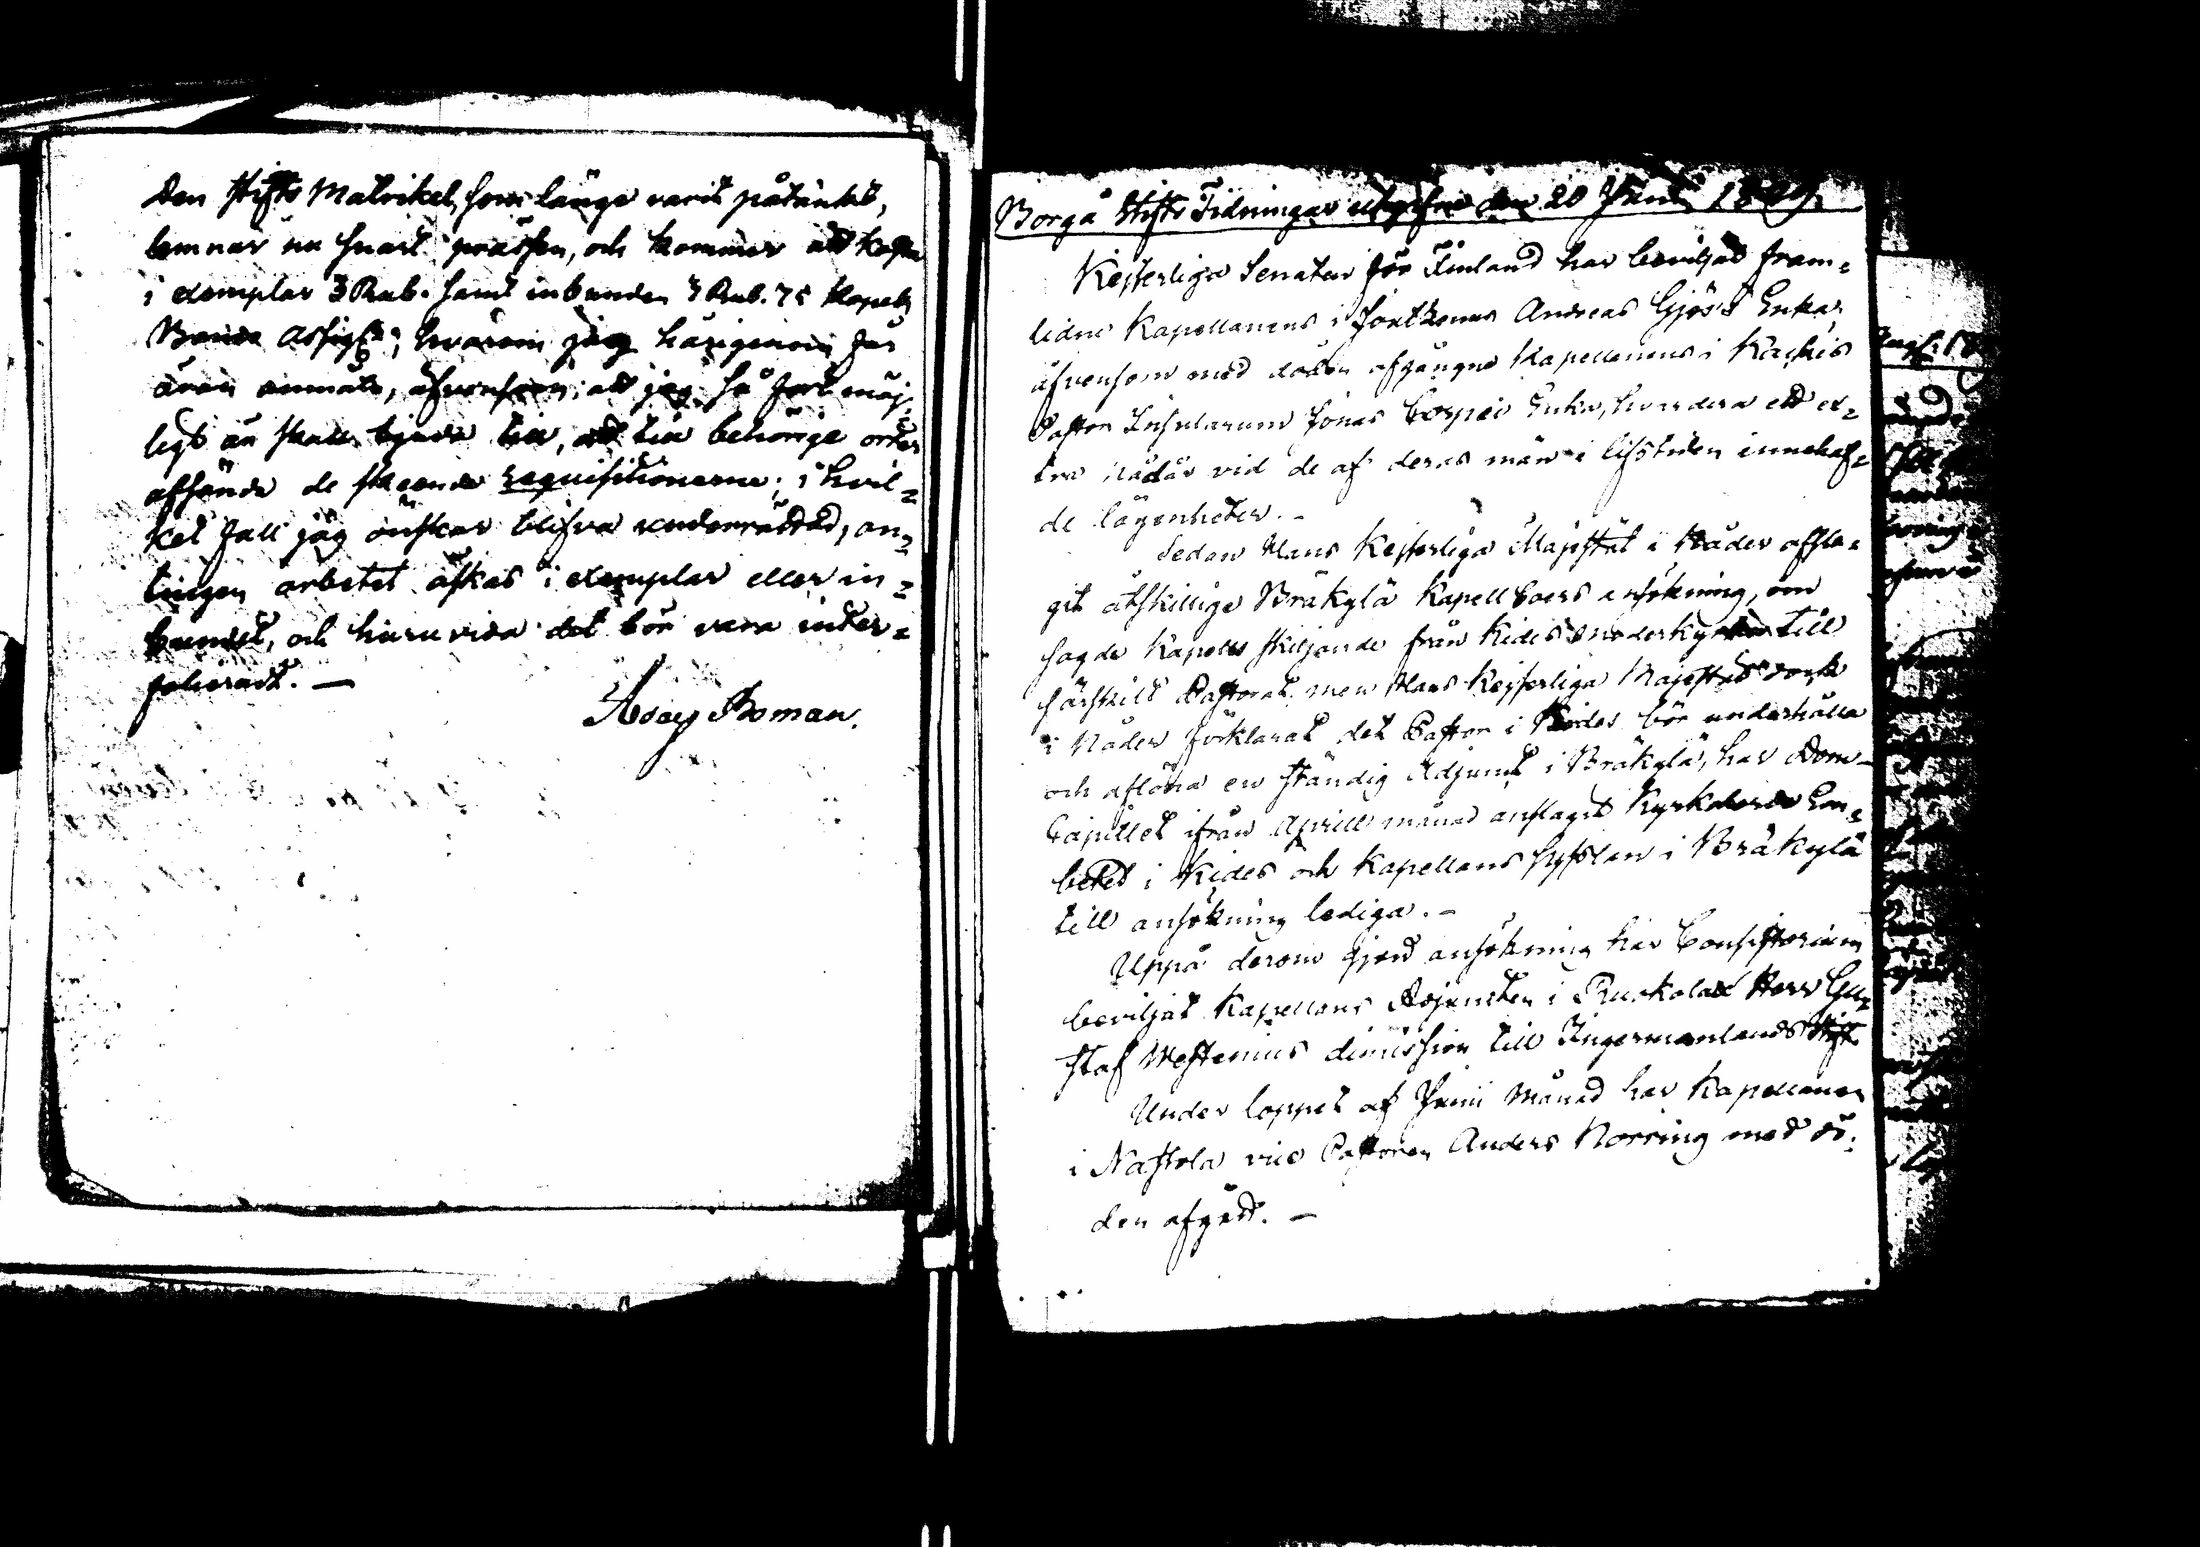 Den Stifts Matrikel, som länge varit påtänkt,
lemnar nu snart prässen, och kommer att kosta
i exemplar 3 Rub. samt inbunden 3 Rub. 75 Kopek
Banco Assign:, hvarom jag härigenom får
äran anmäla, äfvensom att jag så fort möj-
ligt är skall bjuda till, att till behörige orter
afsända de skeende requisitionerne; i hvil=
ket fall jag önskar blifva underrättad, an=
tingen arbetet äskas i exemplar eller in=
bundet, och huruvida det bör vara inter=
folieradt. —
Boman.
Borgå Stifts Tidningar utgifne den 20 Junii 1829.
Kejserliga Senaten för Finland har beviljat fram=
lidne Kapellanens i Joutzenus Andreas Gjös's Enka,
äfvensom med döden afgångne Kapellanens i Kachis
Pastor Insularum Jonas Enka, hvardera ett ex=
tra nådår vid de af deras män i lifstiden innehaf=
de lägenheter. -
Sedan Hans Kejserliga Majestät i Nåder afsla=
git åtskillige Bräkylä Kapellboers ansökning, om
sagde Kapells skiljande från Kides moderkyrka till
särskilt Pastorat men Hans Kejserliga Majestät dock
i Nåder förklarat det Pastor i Kides bör underhålla
och aflöna en ständig Adjunct i Bräkylä, har Dom-
Capitlet ifrån Aprill månad anslagit Kyrkoherde Em=
betet i Kides och Kapellans sysslan i Bräkylä
till ansökning lediga. -
Uppå derom gjord ansökning har Consistorium
beviljat Kapellans Adjuncten i Ruokolax Herr Gu=
staf Westenius dimission till Ingermanlands Stift
Under loppet af Junii Månad har Kapellanen
i Nastola vice Pastoren Anders Norring med dö=
den afgått. —